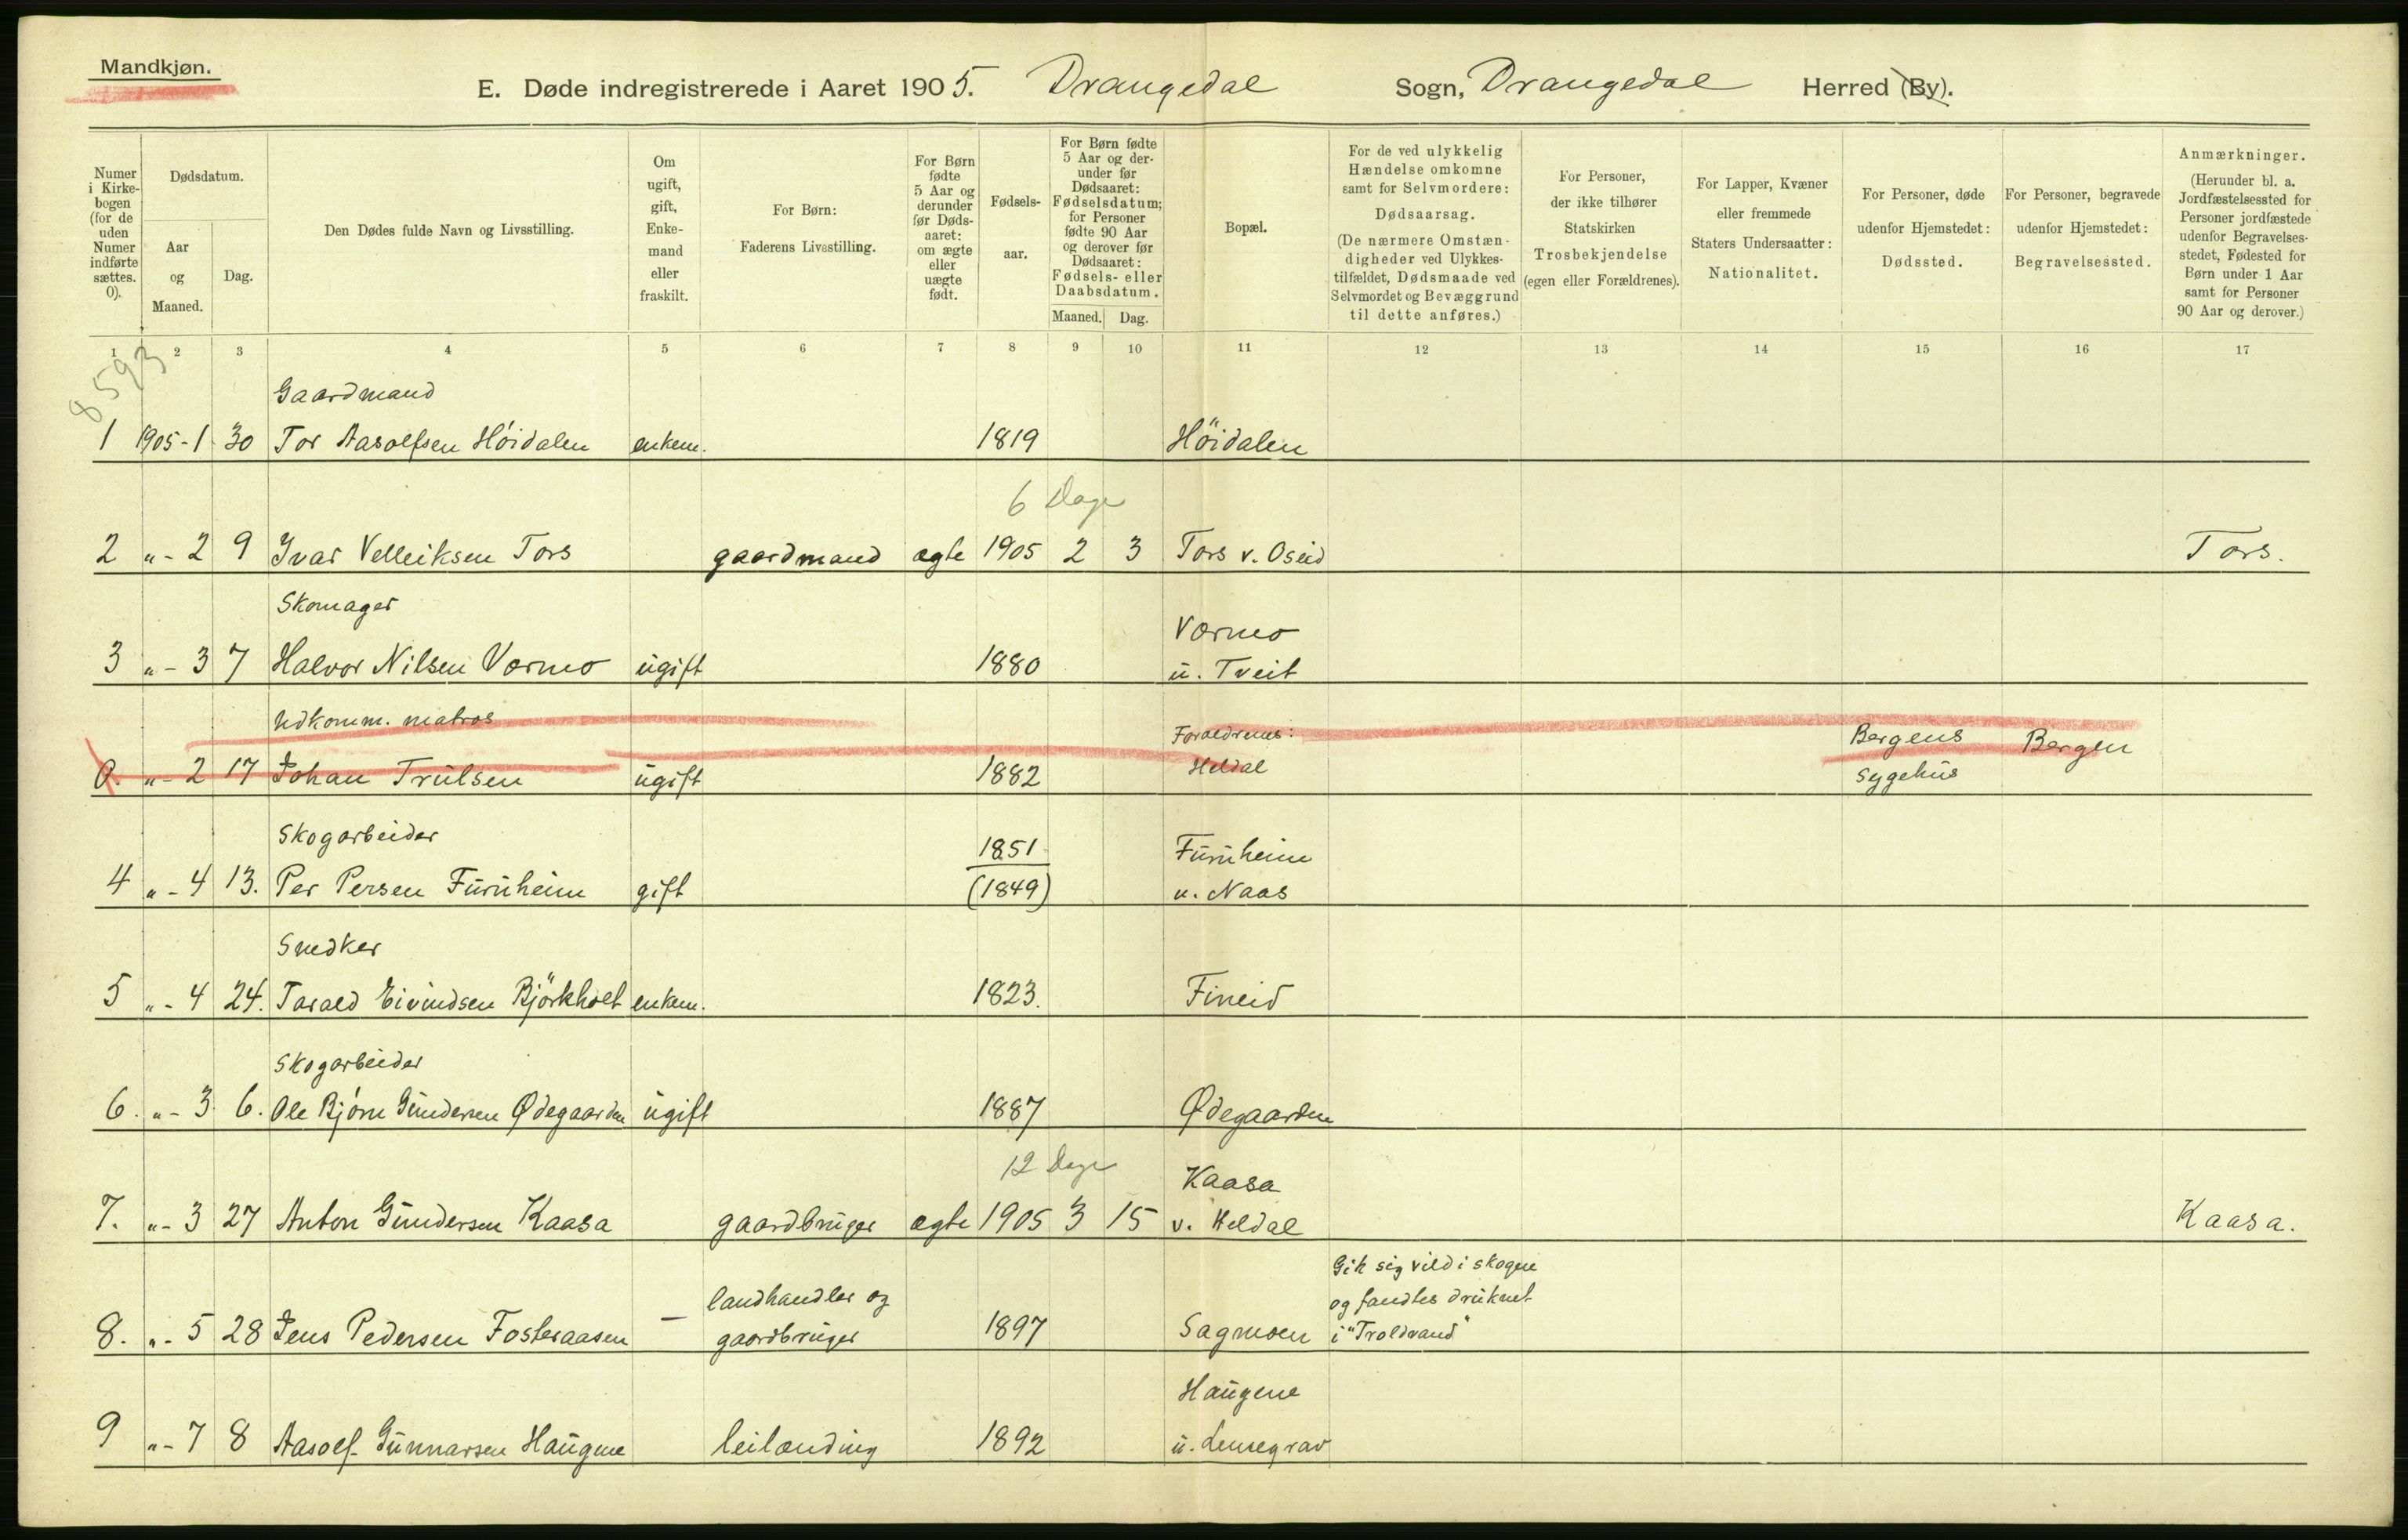 Mandkjøn.
E. Døde indregistrerede i Aaret 1905. Drangedal Sogn, Drangedal Herred (By).
Numer i Kirkebogen (for de uden Numer indførte sættes. 0).
Dødsdatum.
Aar og Maaned.
Dag.
Den Dødes fulde Navn og Livsstilling.
Om ugift, gift, Enkemand eller fraskilt.
For Børn: Faderens Livsstilling.
For Børn fødte 5 Aar og derunder før Dødsaaret: om ægte eller uægte født.
Fødselsaar.
For Børn fødte 5 Aar og derunder før Dødsaaret: Fødselsdatum; for Personer fødte 90 Aar og derover før Dødsaaret: Fødsels- eller Daabsdatum.
Maaned. Dag.
Bopæl.
For de ved ulykkelig Hændelse omkomne samt for Selvmordere: Dødsaarsag. (De nærmere Omstændigheder ved Ulykkestilfældet, Dødsmaade ved Selvmordet og Bevæggrund til dette anføres.)
For Personer, der ikke tilhører Statskirken Trosbekjendelse (egen eller Forældrenes).
For Lapper, Kvæner eller fremmede Staters Undersaatter: Nationalitet.
For Personer, døde udenfor Hjemstedet: Dødssted.
For Personer, begravede udenfor Hjemstedet: Begravelsessted.
Anmærkninger. (Herunder bl. a. Jordfæstelsessted for Personer jordfæstede udenfor Begravelsesstedet, Fødested for Børn under 1 Aar samt for Personer 90 Aar og derover.)
1 2 3 4 5 6 7 8 9 10 11 12 13 14 15 16 17
8593
Gaardmand
1 1905-1 30 Tor Aasolfsen Höidalen enkem. 1819 Höidalen
6 Dage
2 „- 2 9 Ivar Velleiksen Tors gaardmand ægte 1905 2 3 Tors v. Oseid Tors.
Skomager
Vormo
3 „- 3 7 Halvor Nilsen Vormo ugift 1880 u. Tveit
Udkomm. matros Foraldrenes: Bergens Bergen
0. „- 2 17 Johan Trulsen ugift 1882 Heldal sygehus
Skogarbeider 1851 Furuheim
4 „- 4 13. Per Persen Furuheim gift (1849) u. Naas
Snedker
5 „- 4 24. Tarald Eivindsen Björkholt enkem. 1823. Fineid
Skogarbeider
6. „- 3 6. Ole Bjørn Gundersen Ødegaarden ugift 1887 Ødegaarden
12 Dage Kaasa
7. „- 3 27 Anton Gundersen Kaasa gaardbruger ægte 1905 3 15 v. Heldal Kaasa.
Gik sig vild i skogene
landhandler og og fandtes druknet
8. „- 5 28 Jens Pedersen Fosteraasen — gaardbruger 1897 Sagmoen i "Troldvand"
Haugene
9 „- 7 8 Aasolf Gunnarsen Haugene leilænding 1892 u. Lensegrav